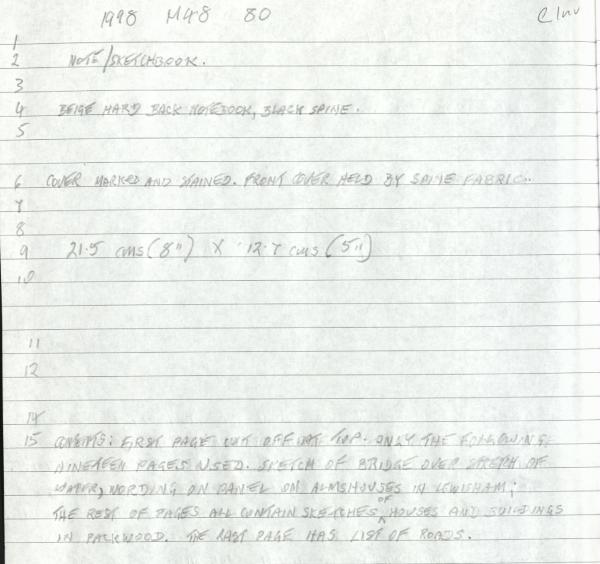 1998 M48 80
C Inv
1
2 NOTE/SKETCHBOOK.
3
4 BEIGE HARD BACK NOTEBOOK, BLACK SPINE.
5
6 COVER MARKED AND STAINED. FRONT COVER HELD BY SPINE FABRIC..
7
8
9 21.5 cms (8") X 12.7 cms (5")
10
11
12
14
15 CONTENTS: FIRST PAGE CUT OFF AT TOP. ONLY THE FOLLOWING
NINETEEN PAGES USED. SKETCH OF BRIDGE OVER OF
WATER, WORDING ON PANEL ON ALMSHOUSES IN LEWISHAM;
THE REST OF PAGES ALL CONTAIN SKETCHES OF HOUSES AND BUILDINGS
IN PACKWOOD. THE LAST PAGE HAS LIST OF ROADS.